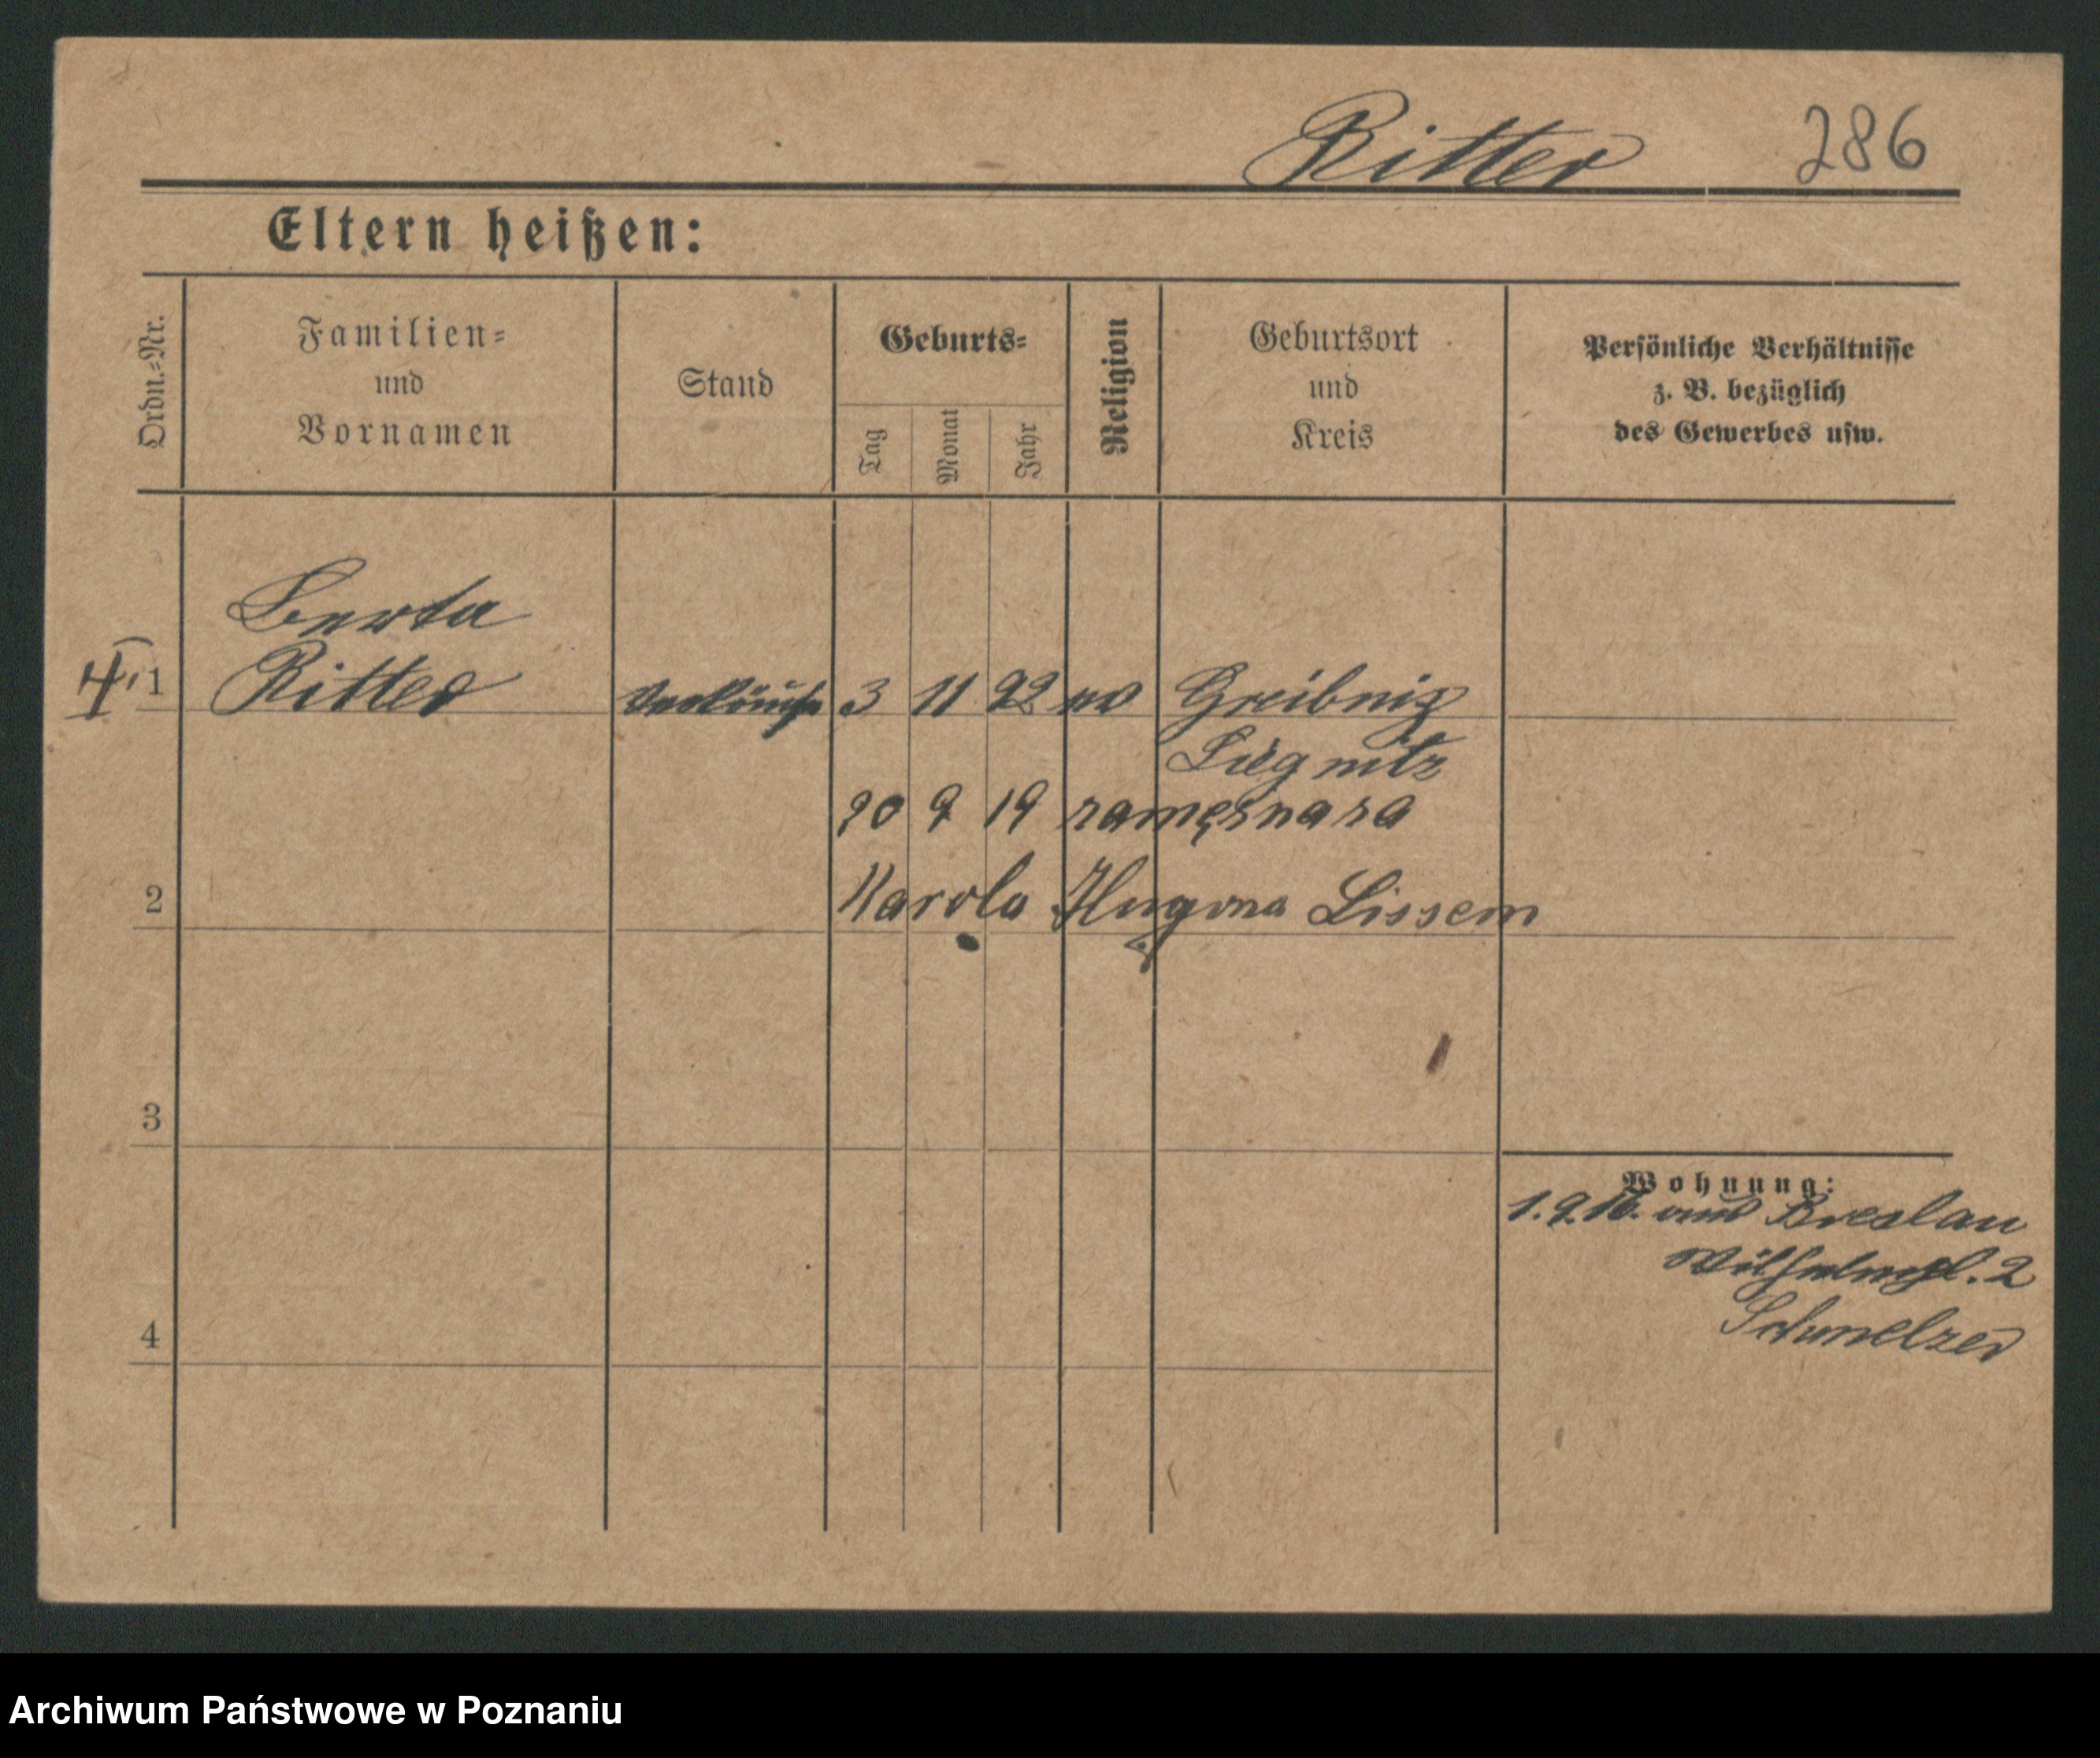 Ritter 286
Eltern heißen:
Ordn.-Nr.
Familien-
und
Vornamen
Stand
Geburts-
Tag
Monat
Jahr
Religion
Geburtsort
und
Kreis
Persönliche Verhältnisse
z. B. bezüglich
des Gewerbes usw.
Berta
1 Ritter 3 11 92 ev Greibnig
Liegnitz
20 9 19 zamężna za
2 Karola Hugona Lissem
3
Wohnung:
1.9.16. aus Breslau
Wilhelmspl. 2
Schmelzer
4
Archiwum Państwowe w Poznaniu